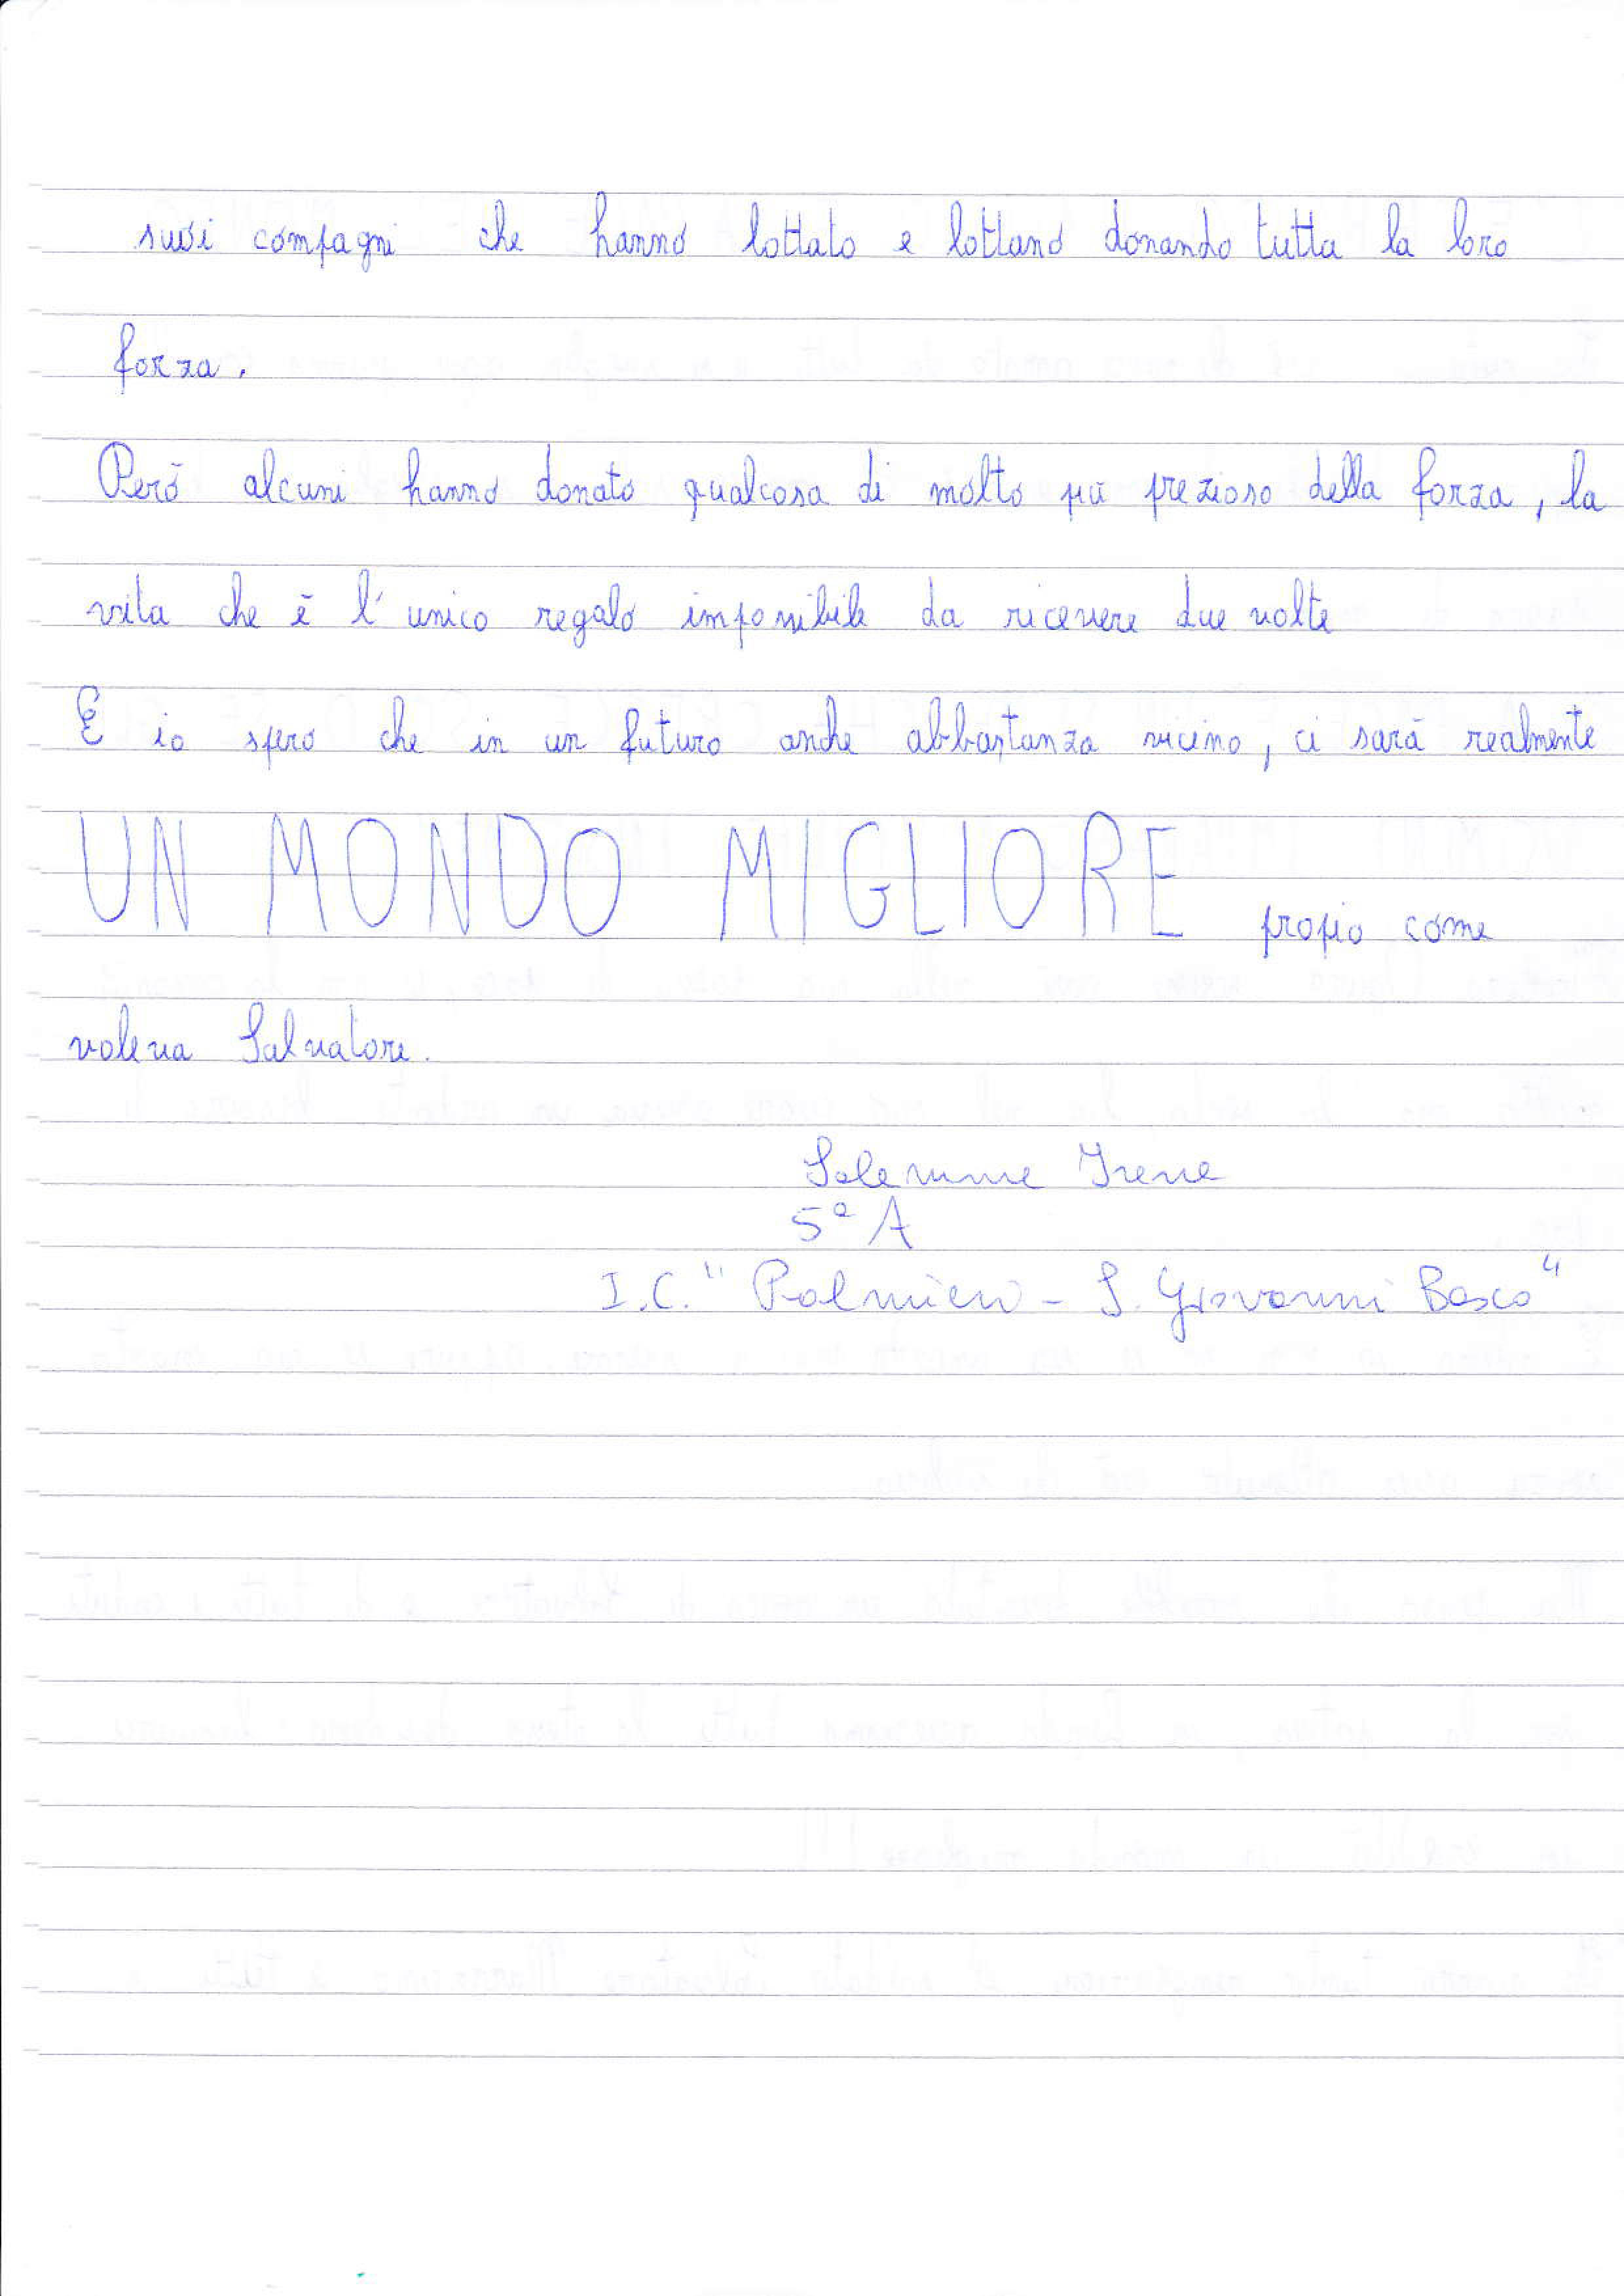 suoi compagni che hanno lottato e lottano donando tutta la loro
forza.
Però alcuni hanno donato qualcosa di molto più prezioso della forza, la
vita che è l'unico regalo impossibile da ricevere due volte
E io spero che in un futuro anche abbastanza vicino, ci sarà realmente
UN MONDO MIGLIORE propio come
voleva Salvatore.
Solemme Irene
5ª A
I.C. "Palmieri - S. Giovanni Bosco"